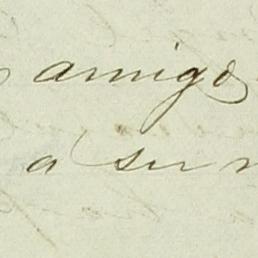 amigo
a su